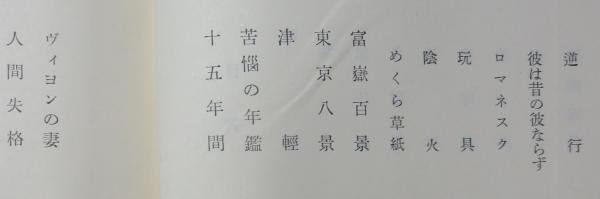 逆行
彼は昔の彼ならず
ロマネスク
玩具
陰火
めくら草紙
富嶽百景
東京八景
津輕
苦惱の年鑑
十五年間
ヴィヨンの妻
人間失格